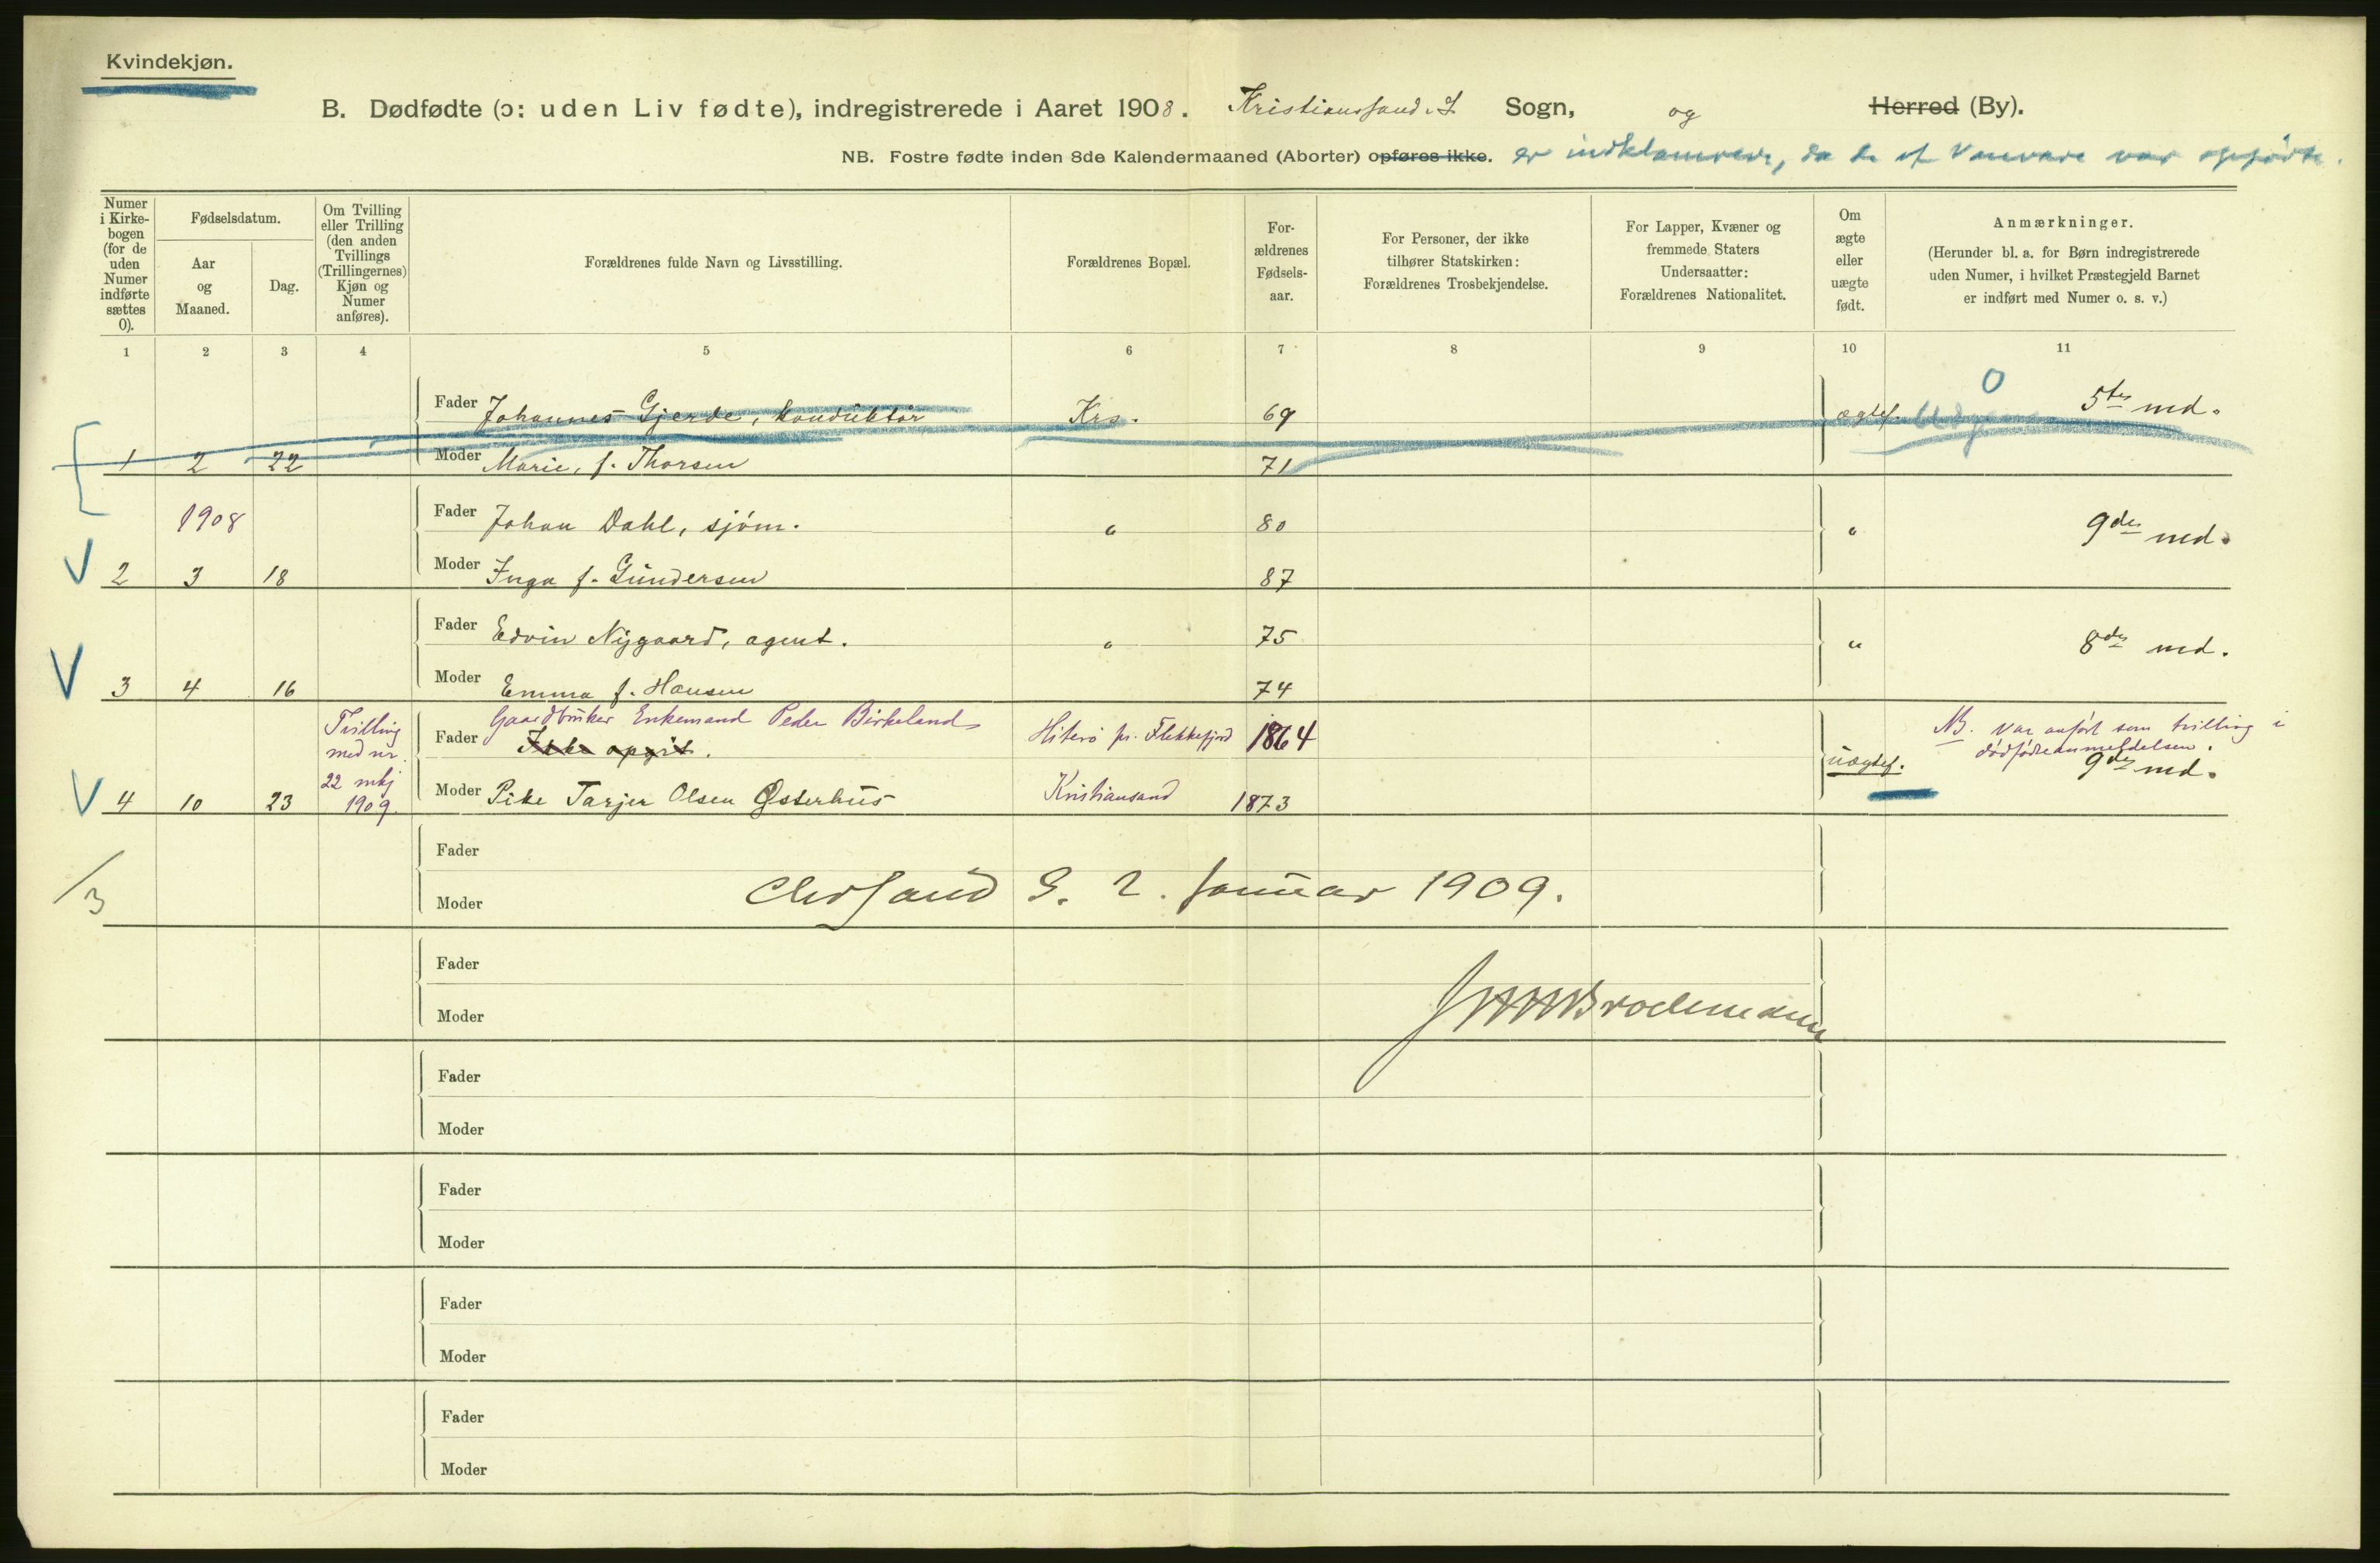 Kvindekjøn.
B. Dødfødte (ɔ: uden Liv fødte), indregistrerede i Aaret 1908. Kristianssand. S Sogn, og Herred (By).
NB. Fostre fødte inden 8de Kalendermaaned (Aborter) opføres ikke. er da de af Vanvare var opførte.
Numer i Kirkebogen (for de uden Numer indførte sættes 0).
Fødselsdatum.
Aar og Maaned.
Dag.
Om Tvilling eller Trilling (den anden Tvillings (Trillingernes) Kjøn og Numer anføres).
Forældrenes fulde Navn og Livsstilling.
Forældrenes Bopæl.
Forældrenes Fødselsaar.
For Personer, der ikke tilhører Statskirken: Forældrenes Trosbekjendelse.
For Lapper, Kvæner og fremmede Staters Undersaatter: Forældrenes Nationalitet.
Om ægte eller uægte født.
Anmærkninger.
(Herunder bl. a. for Børn indregistrerede uden Numer, i hvilket Præstegjeld Barnet er indført med Numer o. s. v.)
1 2 3 4 5 6 7 8 9 10 11
Fader Johannes Gjerde, konduktør Krs. 69 ægtef. 0 5te md.
1 2 22 Moder Marie, f. Thorsen 71
1908 Fader Johan Dahl, sjøm. " 80 " 9de md.
2 3 18 Moder Inga f. Gundersen 87
Fader Edvin Nygaard, agent. " 75 " 8de md.
3 4 16 Moder Emma f. Hansen 74
Tvilling med nr. 22 mkj 1909.
Gaardbruker Enkemand Peder Birkeland
Fader Ikke opgit. Hiterø pr. Flekkefjord 1864 uægtef. NB. var anført som tvilling i dødfødteanmeldelsen. 9de md.
4 10 23 Moder Pike Tarjer Olsen Østerhus Kristiansand 1873
Fader
/3 Moder
Chrsand S. 2. Januar 1909.
Fader
Moder
Brockmann
Fader
Moder
Fader
Moder
Fader
Moder
Fader
Moder